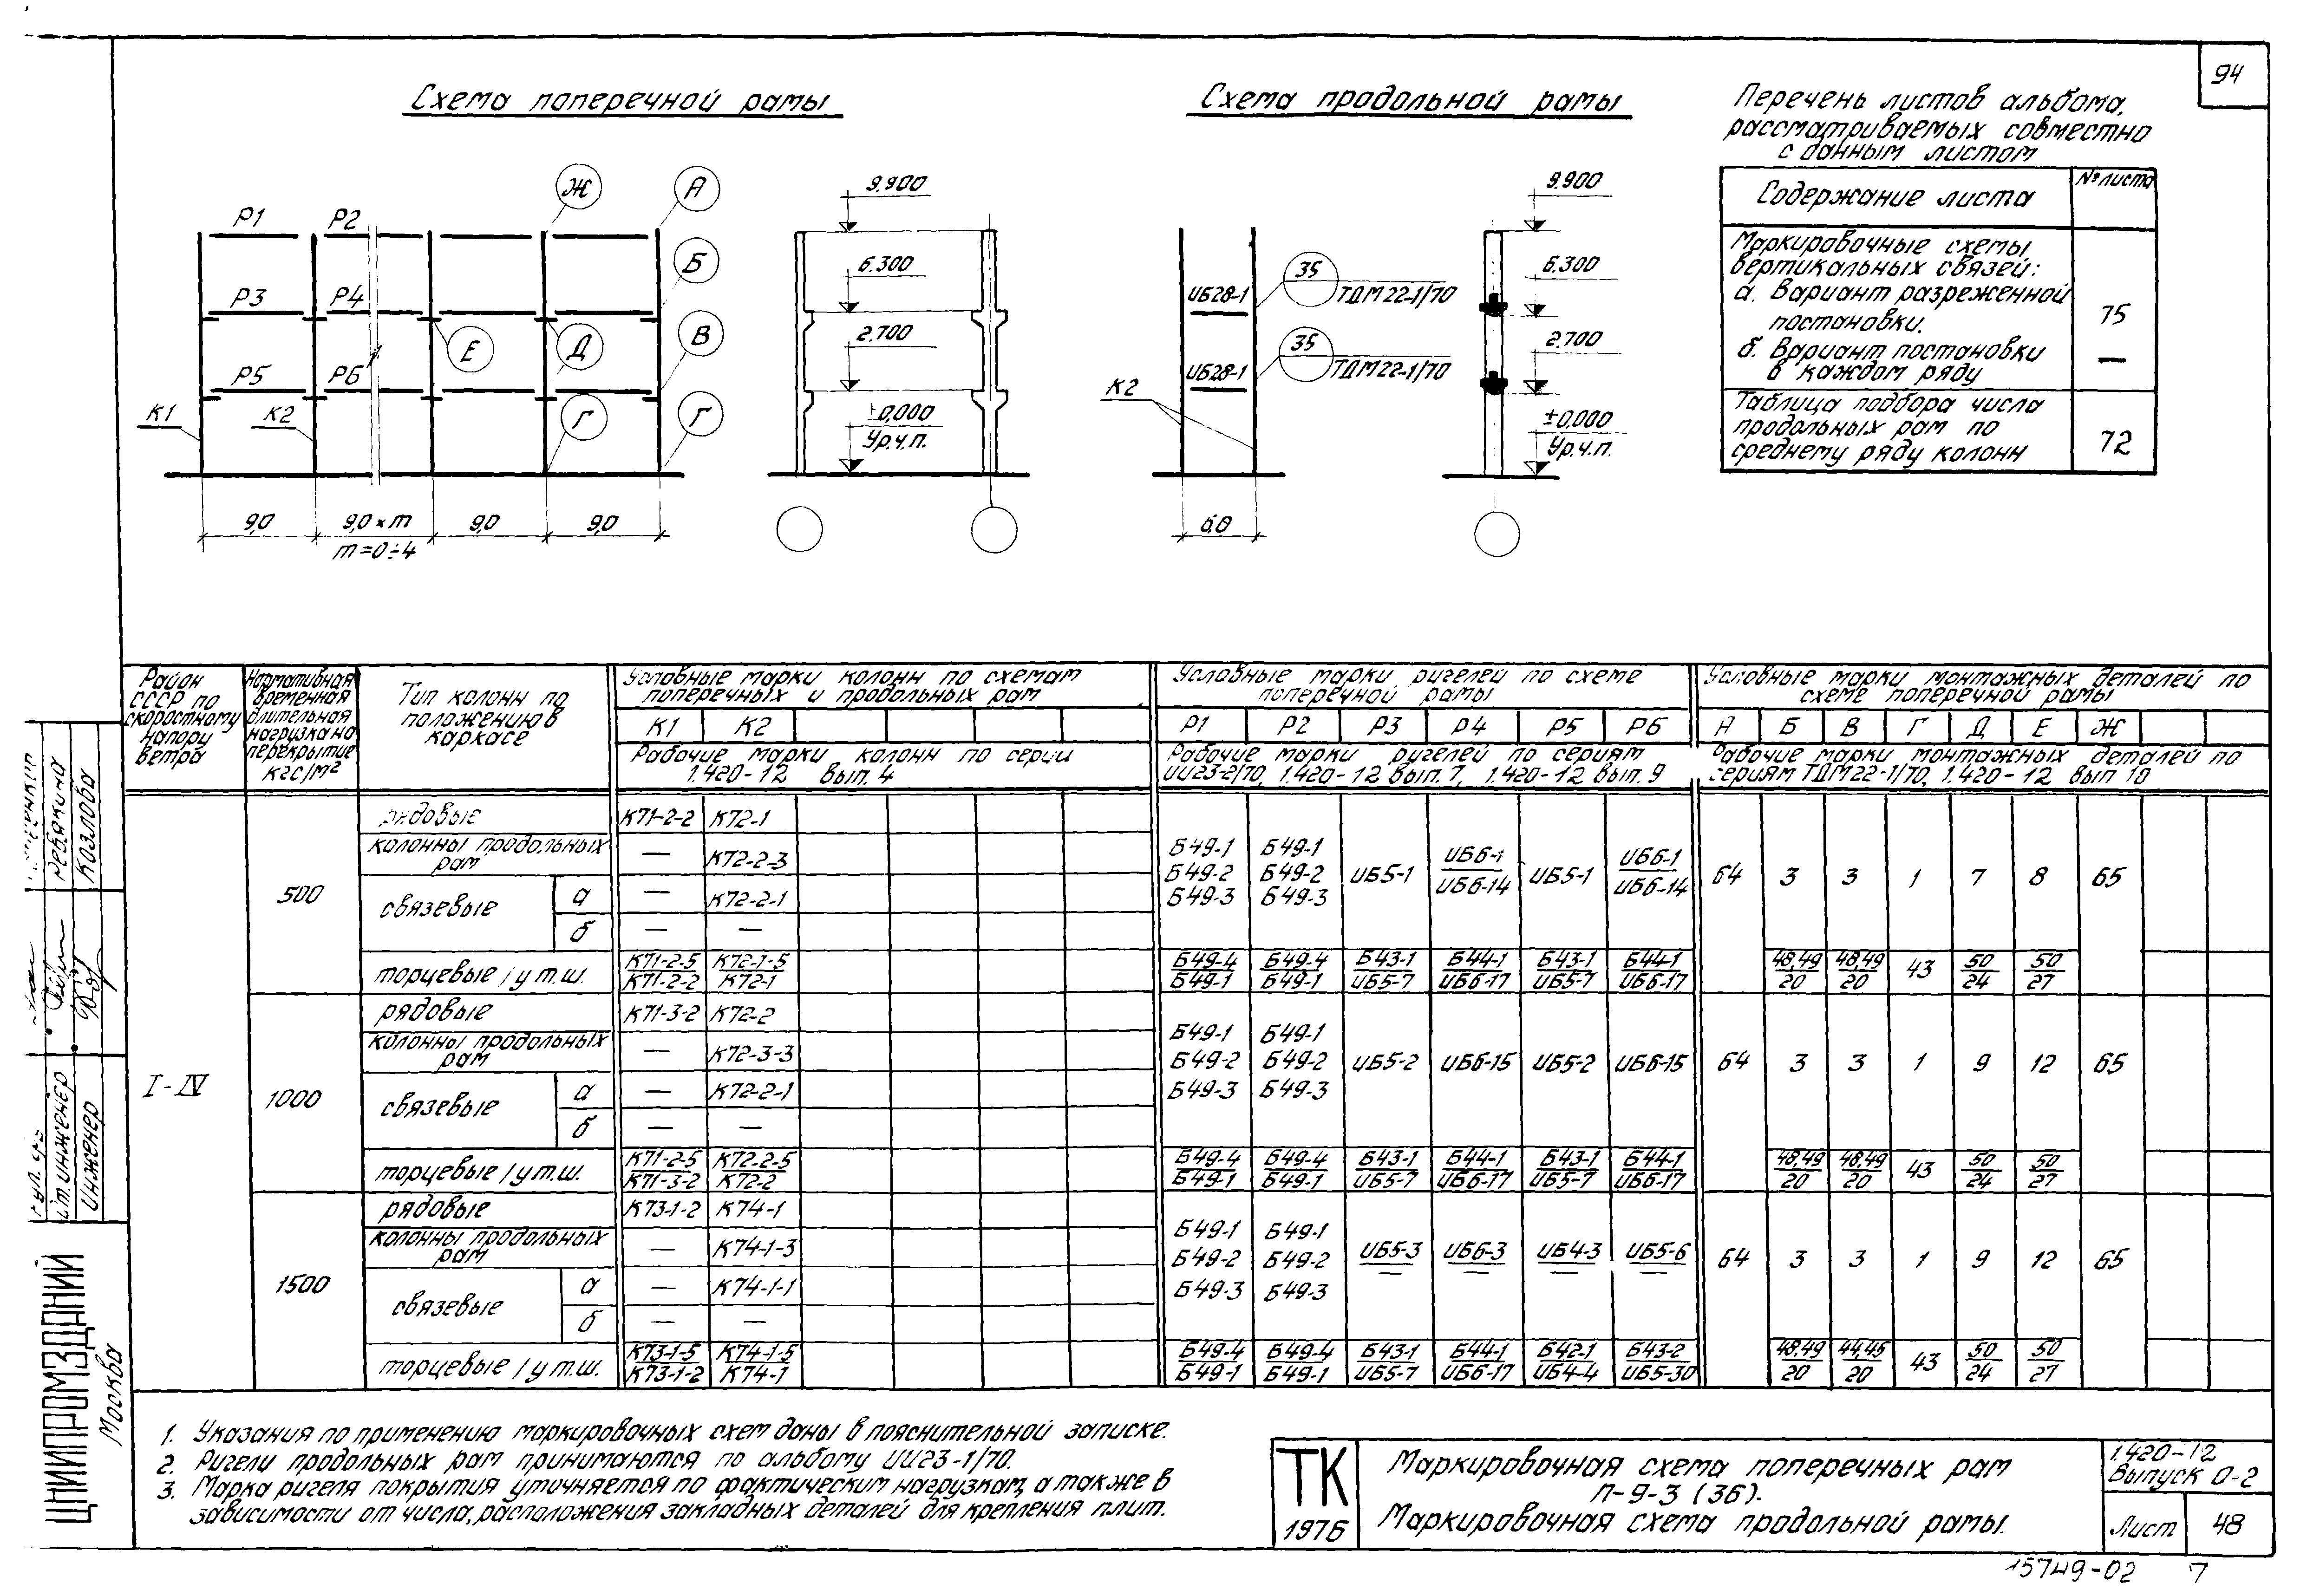 94
Схема поперечной рамы
Р1 Р2
Р3 Р4
Р5 Р6
К1 К2
Ж А
Б
В
Е Д
Г Г
9,0 9,0×m 9,0 9,0
m=0÷4
9.900
6.300
2.700
±0,000
Ур.ч.п.
Схема продольной рамы
ИБ28-1 35 ТДМ22-1/70
ИБ28-1 35 ТДМ22-1/70
К2
6,0
9.900
6.300
2.700
±0,000
Ур.ч.п.
Перечень листов альбома,
рассматриваемых совместно
с данным листом
Содержание листа №листа
Маркировочные схемы
вертикальных связей:
а. Вариант разреженной
постановки. 75
б. Вариант постановки
в каждом ряду —
Таблица подбора числа
продольных рам по
среднему ряду колонн 72
Район СССР по скоростному напору ветра
Нормативная временная длительная нагрузка на перекрытие кгс/м²
Тип колонн по положению в каркасе
Условные марки колонн по схемам
поперечных и продольных рам
К1 К2
Рабочие марки колонн по серии
1.420-12 вып. 4
Условные марки ригелей по схеме
поперечной рамы
Р1 Р2 Р3 Р4 Р5 Р6
Рабочие марки ригелей по сериям
ИИ23-2/70, 1.420-12 вып. 7, 1.420-12 вып. 9
Условные марки монтажных деталей по
схеме поперечной рамы
А Б В Г Д Е Ж
Рабочие марки монтажных деталей по
сериям ТДМ22-1/70, 1.420-12 вып 10
I-IV
500
рядовые К71-2-2 К72-1
колонны продольных рам — К72-2-3
связевые а — К72-2-1
б — —
Б49-1 Б49-1
Б49-2 Б49-2 ИБ5-1 ИБ6-1/ИБ6-14 ИБ5-1 ИБ6-1/ИБ6-14 64 3 3 1 7 8 65
Б49-3 Б49-3
торцевые/у т.ш. К71-2-5/К71-2-2 К72-1-5/К72-1 Б49-4/Б49-1 Б49-4/Б49-1 Б43-1/ИБ5-7 Б44-1/ИБ6-17 Б43-1/ИБ5-7 Б44-1/ИБ6-17 48,49/20 48,49/20 43 50/24 50/27
1000
рядовые К71-3-2 К72-2
колонны продольных рам — К72-3-3
связевые а — К72-2-1
б — —
Б49-1 Б49-1
Б49-2 Б49-2 ИБ5-2 ИБ6-15 ИБ5-2 ИБ6-15 64 3 3 1 9 12 65
Б49-3 Б49-3
торцевые/у т.ш. К71-2-5/К71-3-2 К72-2-5/К72-2 Б49-4/Б49-1 Б49-4/Б49-1 Б43-1/ИБ5-7 Б44-1/ИБ6-17 Б43-1/ИБ5-7 Б44-1/ИБ6-17 48,49/20 48,49/20 43 50/24 50/27
1500
рядовые К73-1-2 К74-1
колонны продольных рам — К74-1-3
связевые а — К74-1-1
б — —
Б49-1 Б49-1
Б49-2 Б49-2 ИБ5-3/— ИБ6-3/— ИБ4-3/— ИБ5-6/— 64 3 3 1 9 12 65
Б49-3 Б49-3
торцевые/у т.ш. К73-1-5/К73-1-2 К74-1-5/К74-1 Б49-4/Б49-1 Б49-4/Б49-1 Б43-1/ИБ5-7 Б44-1/ИБ6-17 Б42-1/ИБ4-4 Б43-2/ИБ5-30 48,49/20 44,45/20 43 50/24 50/27
1. Указания по применению маркировочных схем даны в пояснительной записке.
2. Ригели продольных рам принимаются по альбому ИИ23-1/70.
3. Марка ригеля покрытия уточняется по фактическим нагрузкам, а также в
зависимости от числа, расположения закладных деталей для крепления плит.
ТК
1976
Маркировочная схема поперечных рам
П-9-3 (36).
Маркировочная схема продольной рамы.
1.420-12
Выпуск 0-2
Лист 48
15749-02 7
ЦНИИПРОМЗДАНИЙ
Москва
ст. инженер
инженер Козлова